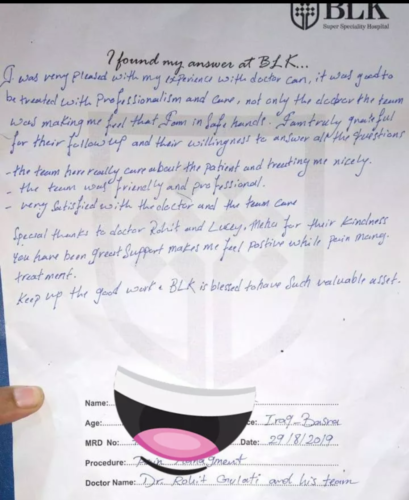 BLK
Super Speciality Hospital
I found my answer at BLK...
I was very pleased with my experience with doctor can, it was good to
be treated with Professionalism and Care, not only the doctor the team
was making me feel that I am in Safe hands. I am truly grateful
for their follow up and their willingness to answer all the questions
- the team here really care about the Patient and treating me nicely.
- the team was friendly and professional.
- very Satisfied with the doctor and the team care
Special thanks to doctor Rohit and for their Kindness
you have been great Support makes me feel Positive while pain
treatment.
Keep up the good work & BLK is blessed to have Such valuable asset.
Name:
Age: ce: Iraq-Basra
MRD No: Date: 29/8/2019
Procedure: Pain Managment
Doctor Name: Dr. Rohit Gulati and his team